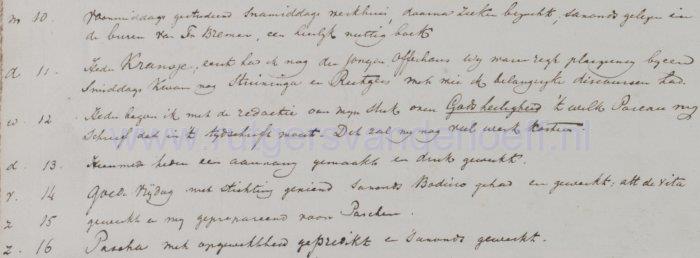 m 10. voormiddags gestudeerd snamiddags werkhuis, daarna zieken bezocht, savonds gelezen in
de buren van Fr. Bremer, een heerlijk nuttig boek
d 11. Heden Kransje, eerst had ik nog den jongen Offerhaus wy waren regt plaizierig byeen
Smiddags kwam nog en Rutgers met wie ik belangryke discoursen had.
w. 12 Heden begon ik met de redactie van mijn stuk over Gods heiligheid 't welk Pareau my
schreef dat in 't tydschrift moest. Dit zal my nog veel werk kosten.
d. 13. heden een aanvang gemaakt en druk gewerkt.
v. 14 Goede Vrijdag met stichting gevierd savonds Bodino gehad en gewerkt; att de vita
z 15 gewerkt en my geprepareerd voor Paschen.
z. 16 Pascha met opgewektheid gepredikt en savonds gewerkt.
www.rutgersvanderloeff.nl